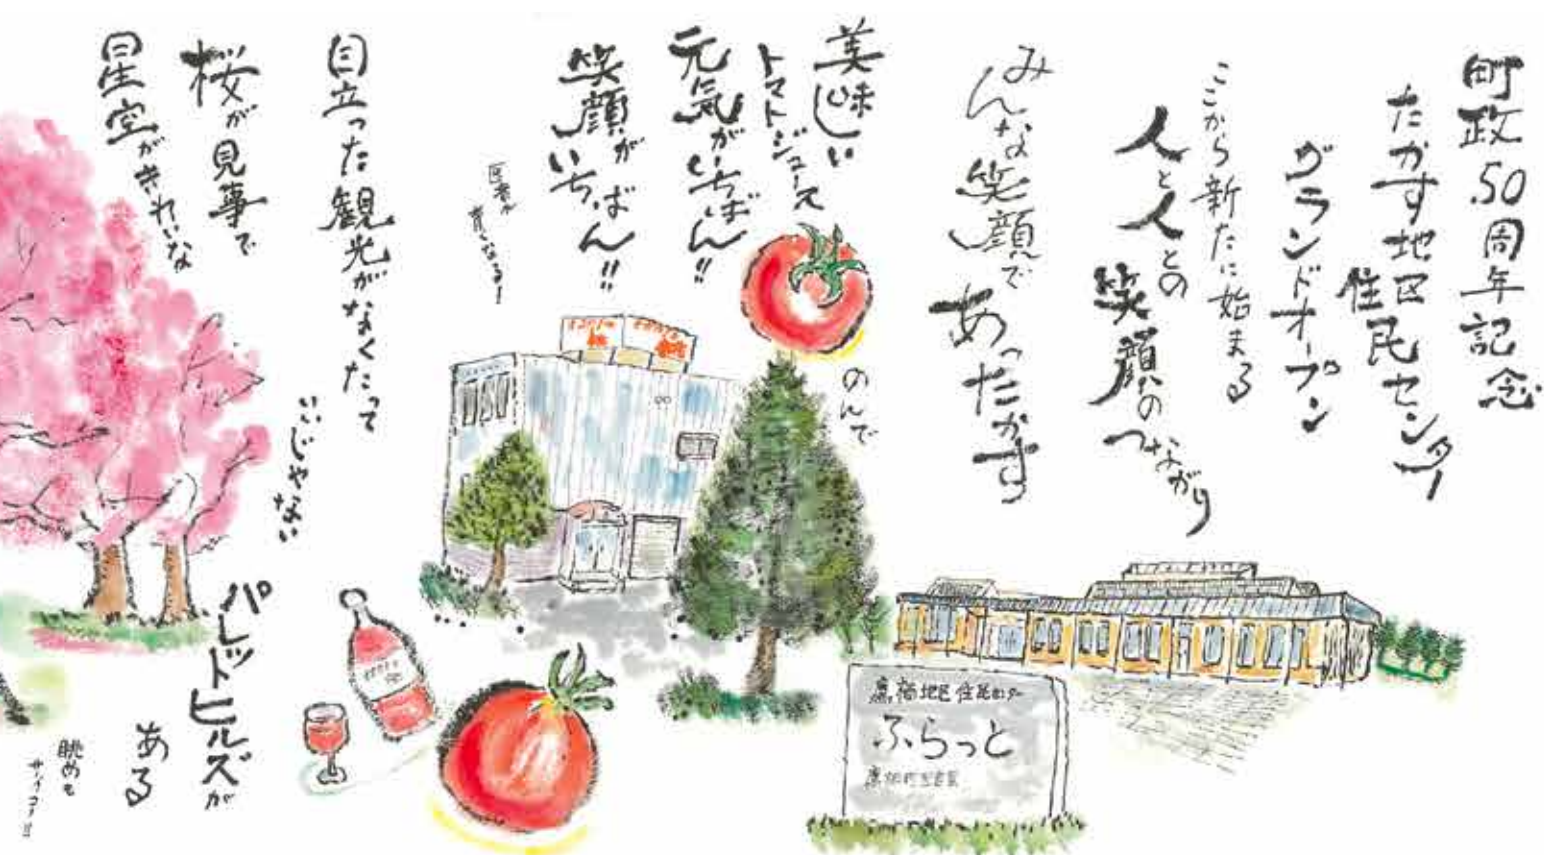 町政50周年記念
たかす地区
住民センター
グランドオープン
ここから新たに始まる
人と人との
笑顔のつながり
みんな笑顔で
あったかす
美味しい
トマトジュース
のんで
元気がいちばん!!
笑顔がいちばん!!
医者が
青くなる!
目立った観光がなくたって
いいじゃない
桜が見事で
星空がきれいな
パレットヒルズが
ある
眺めも
サイコー!!
鷹栖地区住民センター
ふらっと